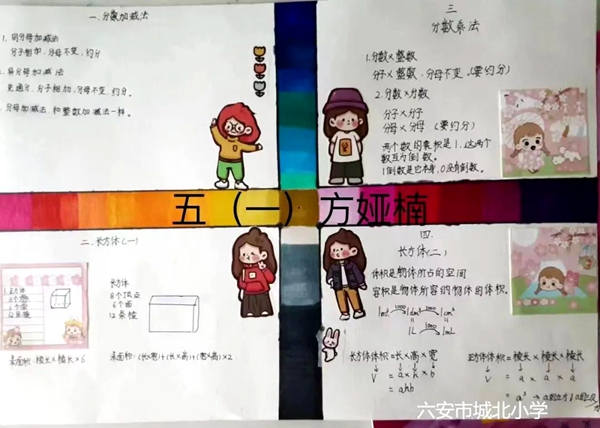 一.分数加减法
1. 同分母加减法
分子相加,分母不变,约分
2. 异分母加减法
先通分,分子相加,分母不变,约分。
3. 分母加减法,和整数加减法一样。
三
分数乘法
1.分数×整数
分子×整数,分母不变。(要约分)
2.分数×分数
分子×分子
分母×分母 (要约分)
两个数的乘积是1,这两个
数互为倒数。
1倒数是它本身,0没有倒数。
五（一）方娅楠
二.长方体(一)
长方体
8个顶点
6个面
12条棱
表面积:棱长×棱长×6
表面积:(长×宽)+(长×高)+(宽×高)×2
四.
长方体(二)
体积是物体所占的空间
容积是物体所容纳物体的体积。
1m³ 1000 1dm³ 1000 1cm³
1L 1000 1mL
长方体体积=长×高×宽
V = a×h×b
= ahb
正方体体积=棱长×棱长×棱长
V = a × a × a
= a³
六安市城北小学